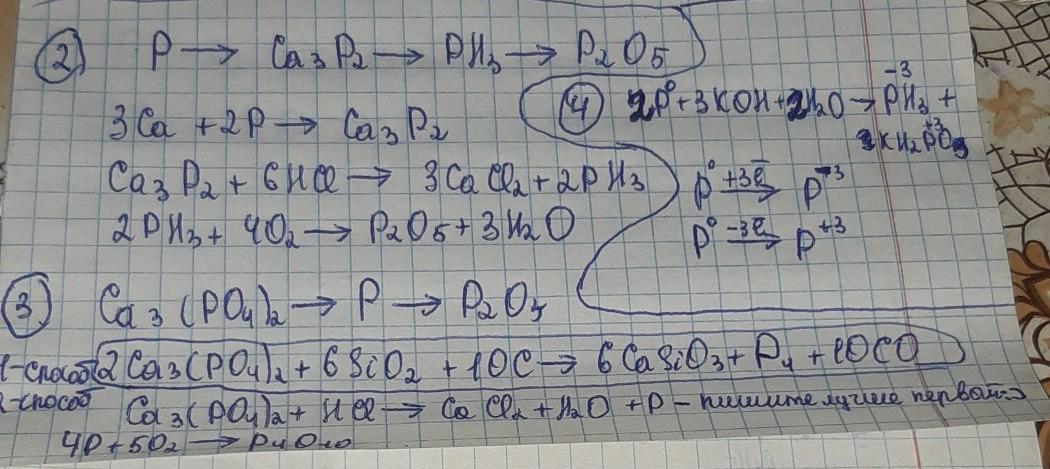 ② P → Ca₃P₂ → PH₃ → P₂O₅
3Ca + 2P → Ca₃P₂
Ca₃P₂ + 6HCl → 3CaCl₂ + 2PH₃
2PH₃ + 4O₂ → P₂O₅ + 3H₂O
④ 2P⁰ + 3KOH + 2H₂O → P⁻³H₃ +
2KH₂P⁺³O₃
P⁰ +3ē → P⁻³
P⁰ -3ē → P⁺³
③ Ca₃(PO₄)₂ → P → P₂O₅
1-способ 2Ca₃(PO₄)₂ + 6SiO₂ + 10C → 6CaSiO₃ + P₄ + 10CO
2-способ Ca₃(PO₄)₂ + HCl → CaCl₂ + H₂O + P - пишите лучше первый
4P + 5O₂ → P₄O₁₀